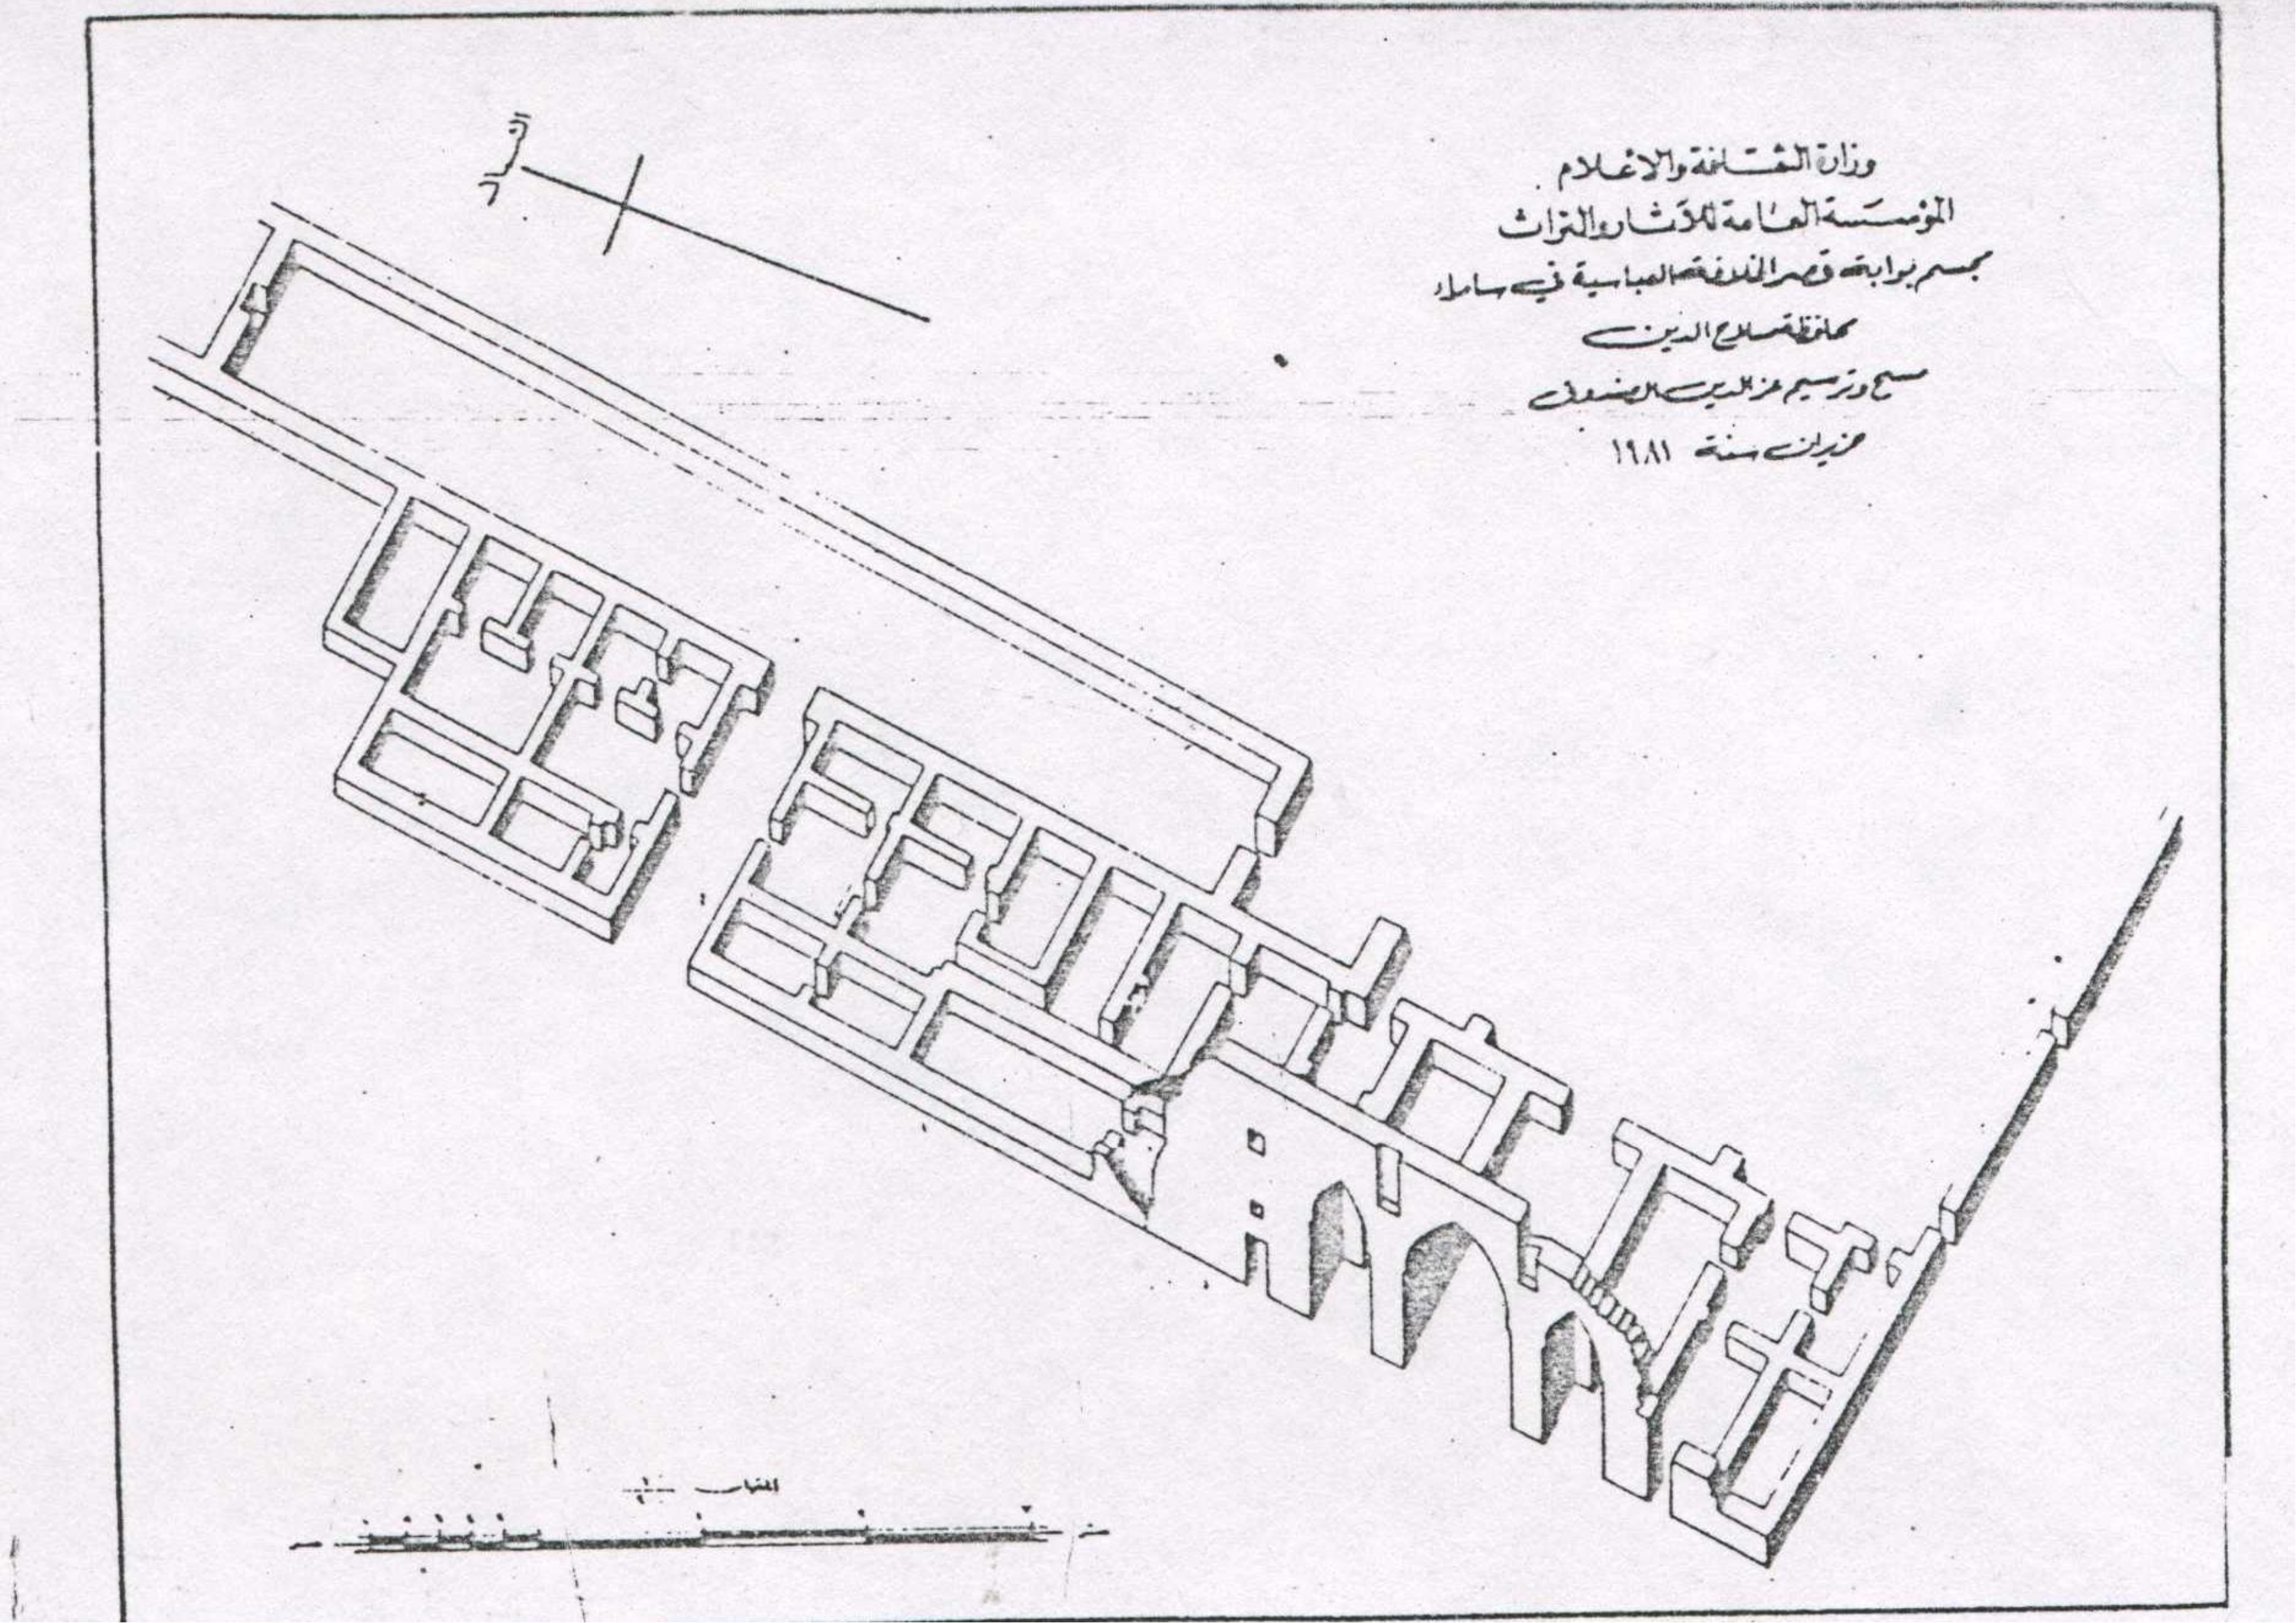 وزارة الثقافة والاعلام
المؤسسة العامة للآثار والتراث
مجسم بوابة قصر الخلافة العباسية في سامراء
محافظة صلاح الدين
مسح وترسيم عز الدين الصندوق
حزيران سنة ١٩٨١
الشمال
المقياس